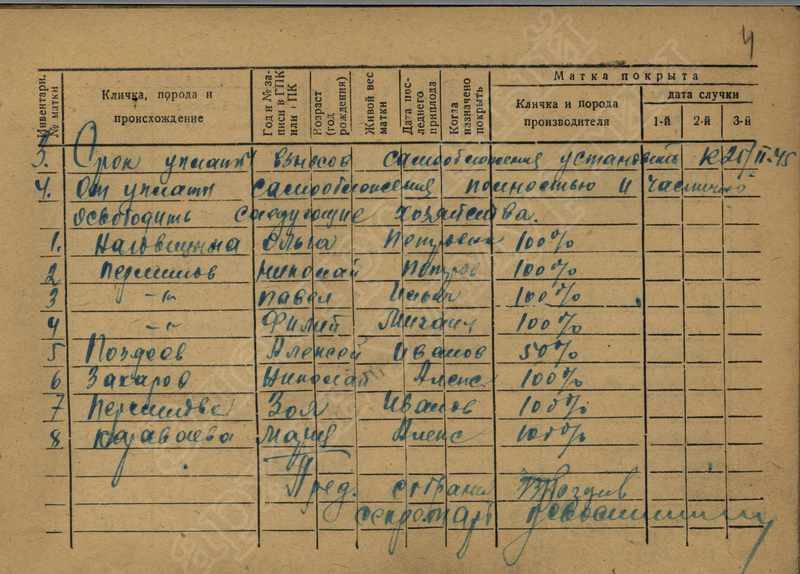 4
Инвентарн. № матки
Кличка, порода и происхождение
Год и № записи в ГПК или ПК
Возраст (год рождения)
Живой вес матки
Дата последнего приплода
Когда назначено покрыть
Матка покрыта
Кличка и порода производителя
дата случки
1-й 2-й 3-й
3. Срок уплаты взносов самообложения установить к 20/II-45
4. От уплаты самообложения полностью и частично
освободить следующие хозяйства.
1. Наговицына Ольга Петровна 100%
2 Перминов Николай Петров 100%
3 -"- Павел Ильич 100%
4 -"- Филип Михаил 100%
5 Поздеев Алексей Иванов 50%
6 Захаров Николай Алекс. 100%
7 Перминова Зоя Иванов 100%
8 Караваева Мария Алекс 100%
Пред. собрания
секретарь